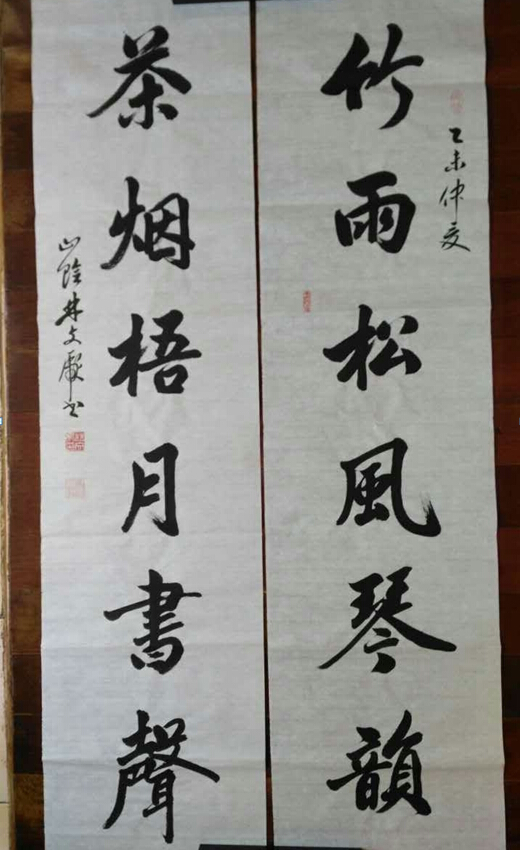 乙未仲夏
竹雨松風琴韻
茶烟梧月書聲
山陰林文